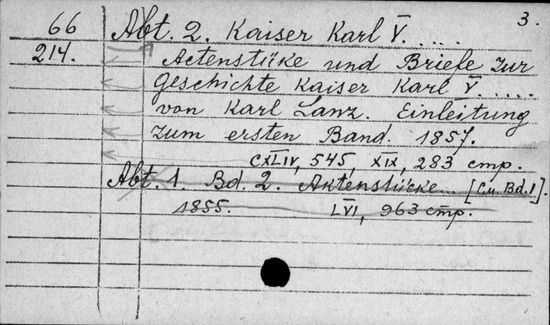 3.
66 Abt. 2. Kaiser Karl V. ....
214. Actenstüke und Briefe zur
geschichte Kaiser Karl V. ....
von Karl Lanz. Einleitung
zum ersten Band. 1857.
CXLIV, 545, XIX, 283 стр.
Abt. 1. Bd. 2. Aktenstücke... [См. Bd. 1]
1855. LVI, 963 стр.